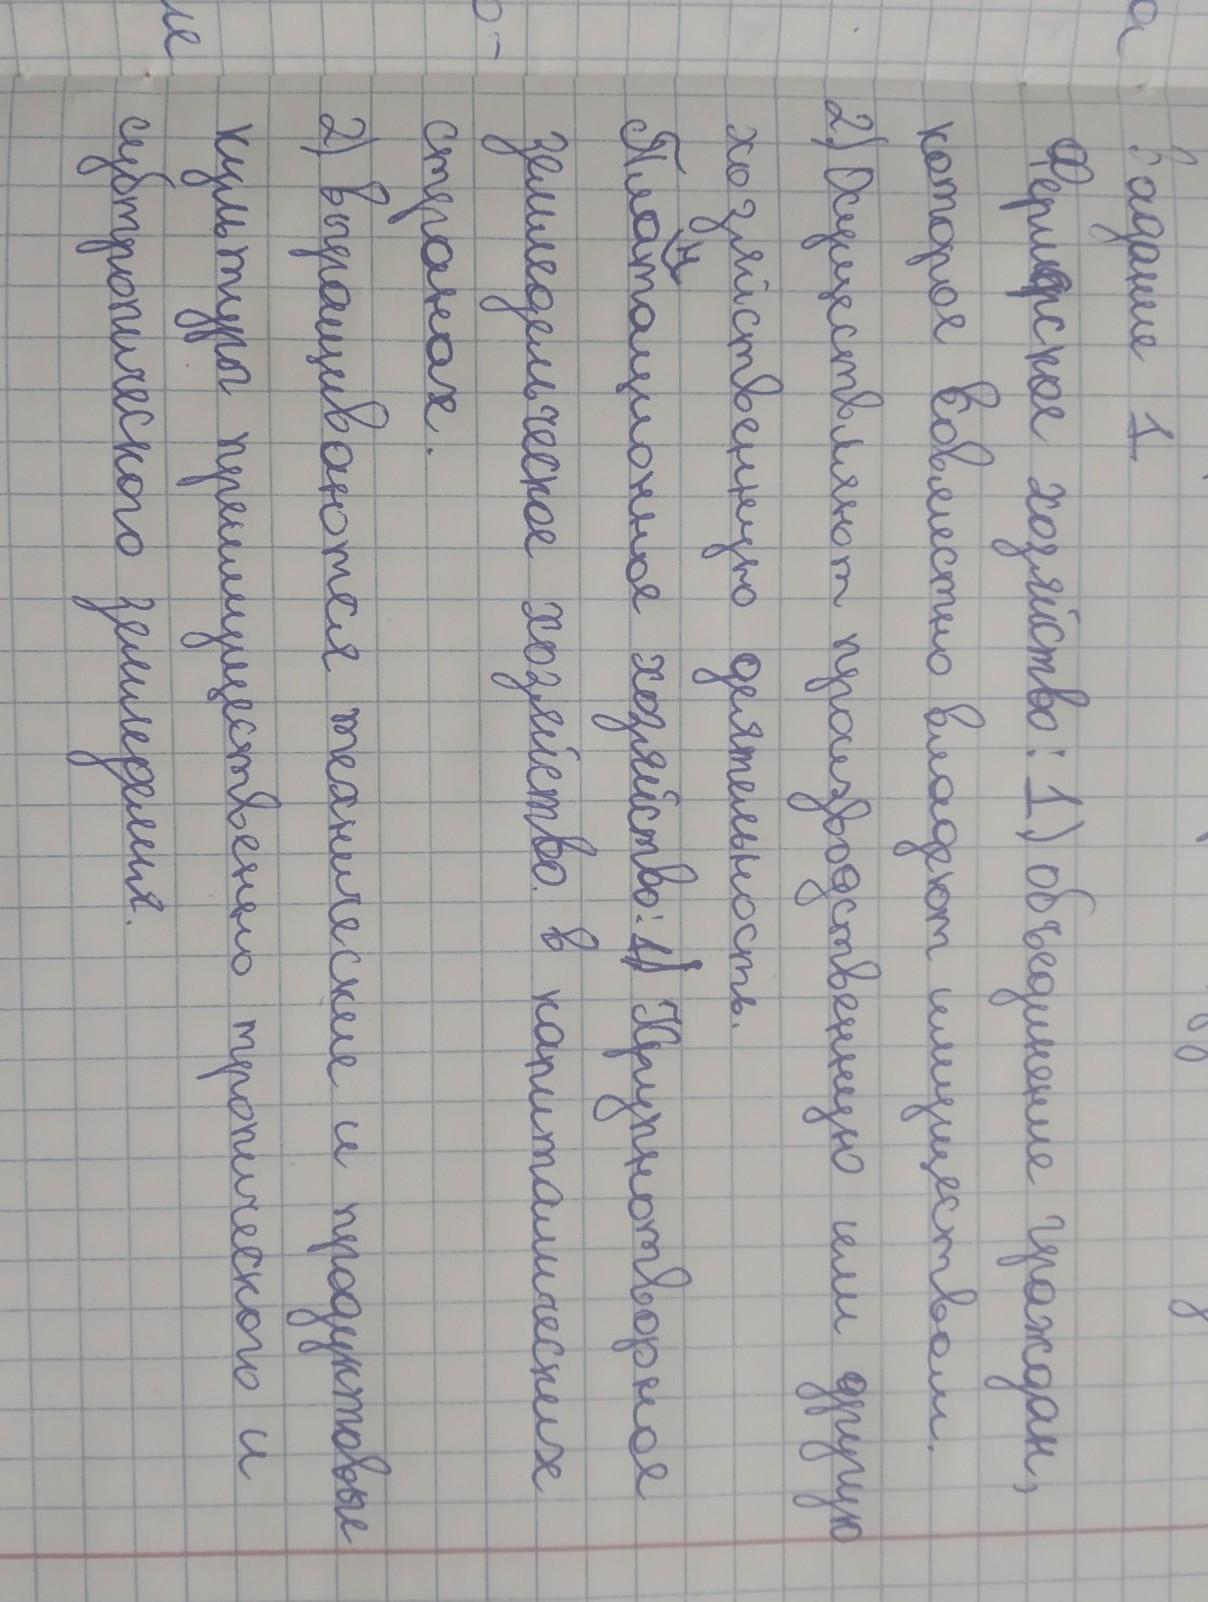 Задание 1
Фермерское хозяйство: 1) объединение граждан,
которое вовместно владеют имуществом.
2) Осуществляют производственную или другую
хозяйственную деятельность.
Плантационное хозяйство: 1) Крупнотворное
земледельческое хозяйство в капиталических
странах.
2) выращиваются технические и продуктовые
культуры преимущественно тропического и
субтропического земледелия.